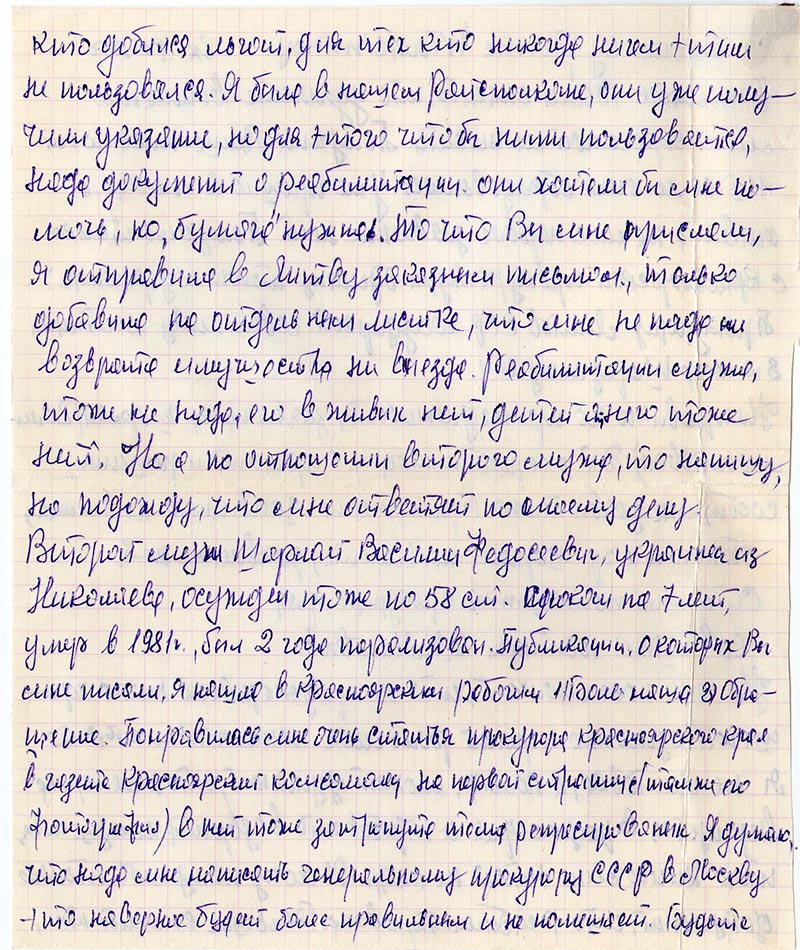 кто добился льгот, для тех кто никогда ничем этим
не пользовался. Я была в нашем Райсполкоме, они уже полу-
чили указание, но для этого чтобы ними пользоваться,
надо документ о реабилитации. они хотели бы мне по-
мочь, но, бумага "нужна". То что Вы мне прислали,
я отправила в Литву заказным письмом., только
добавила на отдельном листке, что мне не надо ни
возврата имущества ни выезда. Реабилитации мужа,
тоже не надо, его в живых нет, детей у него тоже
нет. Но а по отношении второго мужа, то напишу,
но подожду, что мне ответят по моему делу.
Второй муж Шарлай Василий Федосеевич, украинец из
Николаева, осужден тоже по 58 ст. сроком на 7 лет,
умер в 1981г., был 2 года парализован. Публикации, о которых Вы
мне писали, я нашла в Красноярском рабочим 1) Боль наша 2) Обра-
щение. Понравилась мне очень статья прокурора Красноярского края
в газете Красноярский комсомолец на первой странице (там же его
фотография) в ней тоже затронута тема репресированых. Я думаю,
что надо мне написать генеральному прокурору СССР в Москву
это наверное будет более правильным и не помешает. Будете